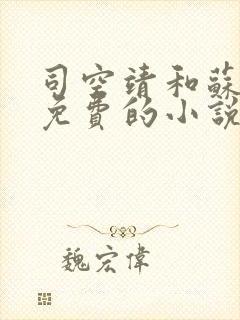 司空靖和蘇
免費的小說
魏宏偉